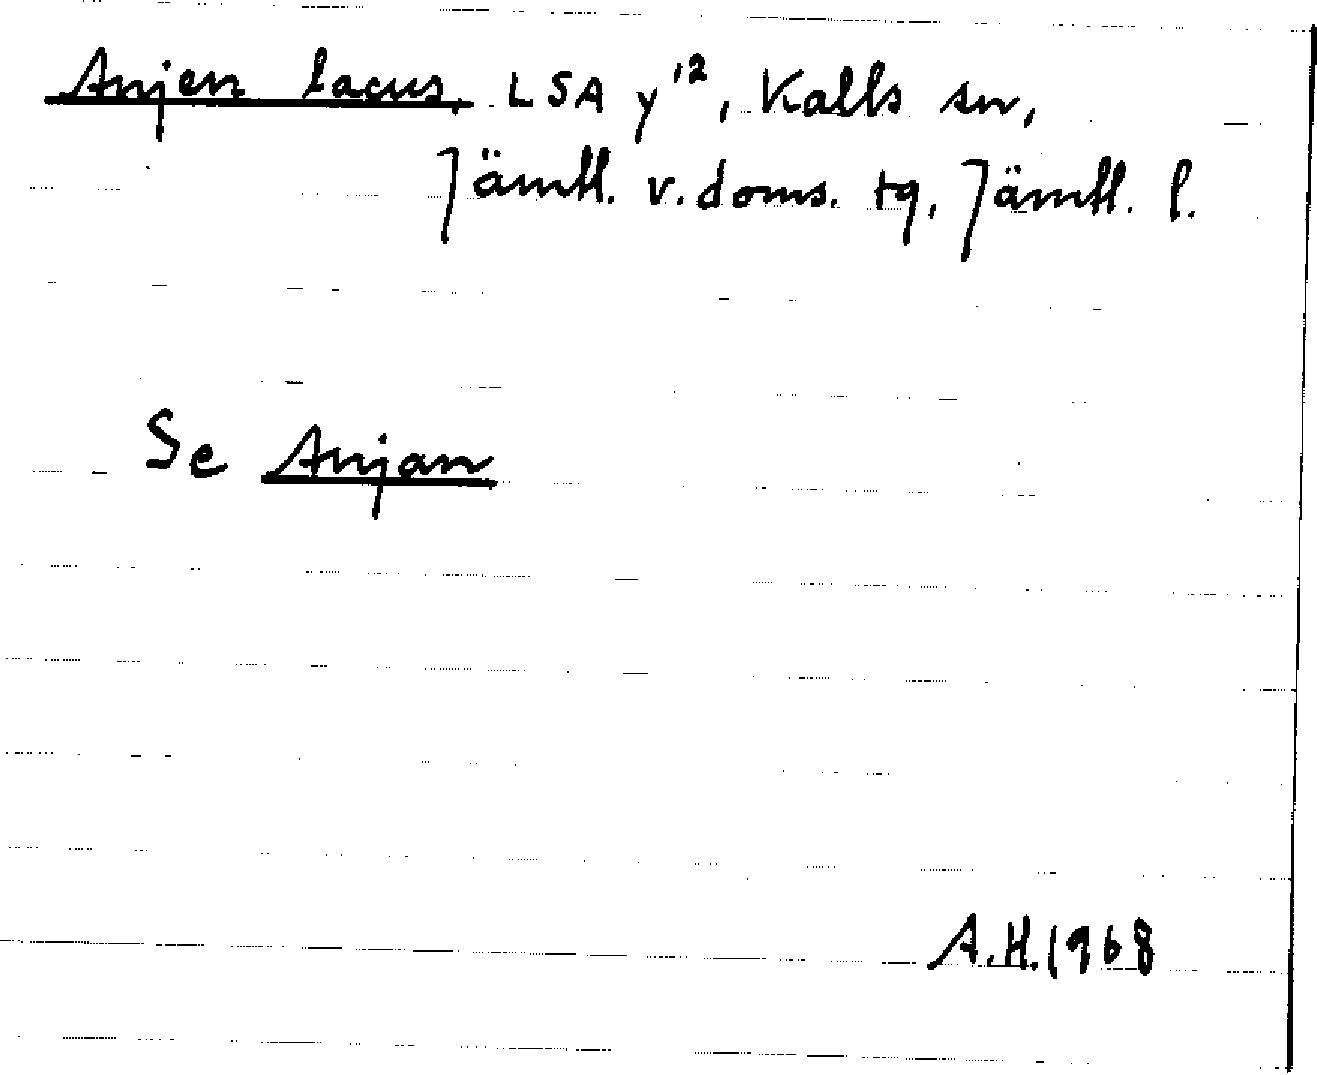 Anjen lacus, LSA y¹², Kalls sn,
Jämtl. v. doms. tg, Jämtl. l.
Se Anjan
A.H. 1968